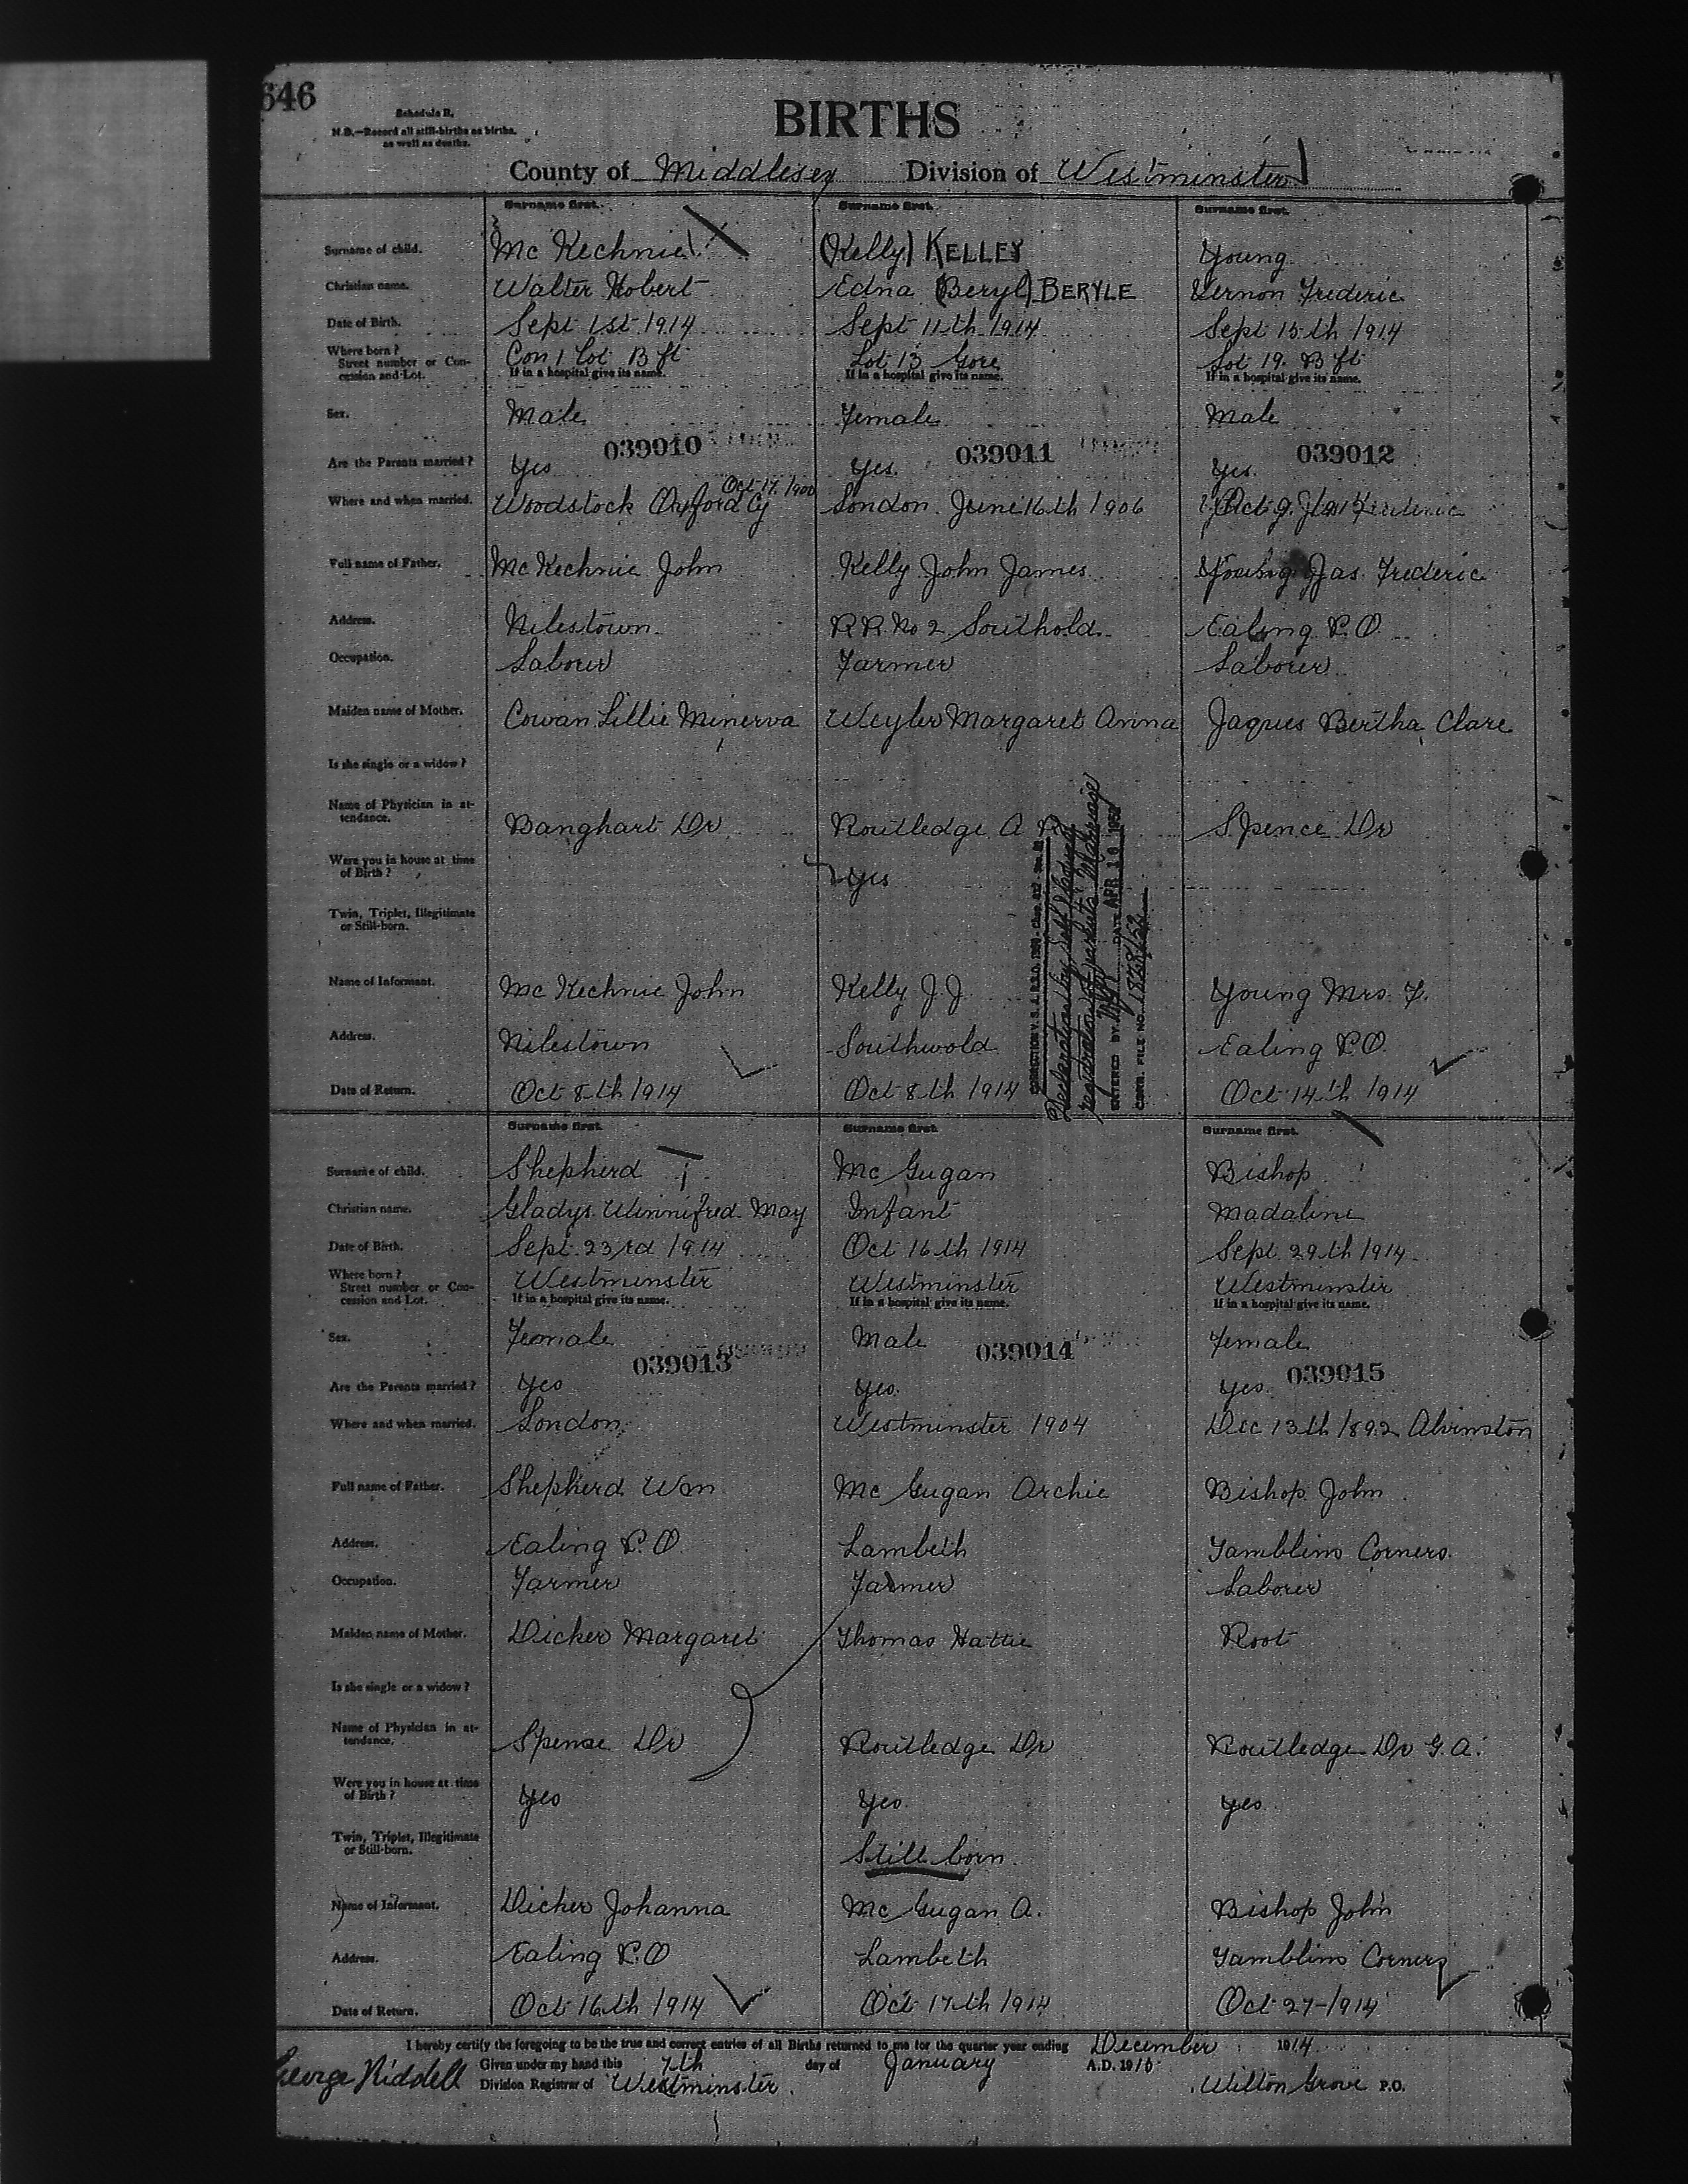 646
Schedule B.
N.B.—Record all still-births as births, as well as deaths.
BIRTHS
County of Middlesex Division of Westminster
Surname first. Surname first. Surname first.
Surname of child. Mc Kechnie (Kelly) KELLEY Young
Christian name. Walter Hobert Edna (Beryl) BERYLE Vernon Frederic
Date of Birth. Sept 1st 1914 Sept 11th 1914 Sept 15th 1914
Where born? Street number or Concession and Lot. Con 1 Lot B ft Lot 13 Gore Lot 19 B ft
If in a hospital give its name. If in a hospital give its name. If in a hospital give its name.
Sex. Male Female Male
039010 039011 039012
Are the Parents married? Yes Yes. Yes.
Where and when married. Woodstock Oxford Cy Oct 17 1900 London June 16th 1906 Oct 9
Full name of Father. Mc Kechnie John Kelly John James Young Jas. Frederic
Address. Nilestown R R No 2 Southold Ealing P.O.
Occupation. Laborer Farmer Laborer
Maiden name of Mother. Cowan Lillie Minerva Weyler Margaret Anna Jaques Bertha Clare
Is she single or a widow?
Name of Physician in attendance. Banghart Dr Routledge A R Spence Dr
Were you in house at time of Birth? Yes
Twin, Triplet, Illegitimate or Still-born.
Name of Informant. Mc Kechnie John Kelly J. J. Young Mrs. F.
Address. Nilestown Southwold Ealing P.O.
Date of Return. Oct 8th 1914 Oct 8th 1914 Oct 14th 1914
registration of parents marriage
ENTERED BY DATE APR 10 1952
CORR. FILE NO.
Surname first. Surname first. Surname first.
Surname of child. Shepherd Mc Gugan Bishop
Christian name. Gladys Winnifred May Infant Madaline
Date of Birth. Sept. 23rd 1914 Oct 16th 1914 Sept 29th 1914
Where born? Street number or Concession and Lot. Westminster Westminster Westminster
If in a hospital give its name. If in a hospital give its name. If in a hospital give its name.
Sex. Female Male Female
039013 039014 039015
Are the Parents married? Yes Yes. Yes.
Where and when married. London Westminster 1904 Dec 13th 1892 Alvinston
Full name of Father. Shepherd Wm Mc Gugan Archie Bishop John
Address. Ealing P.O. Lambeth Tamblins Corners.
Occupation. Farmer Farmer Laborer
Maiden name of Mother. Dicker Margaret Thomas Hattie Root
Is she single or a widow?
Name of Physician in attendance. Spense Dr Routledge Dr Routledge Dr G. A.
Were you in house at time of Birth? Yes Yes Yes
Twin, Triplet, Illegitimate or Still-born. Still born.
Name of Informant. Dicker Johanna Mc Gugan A. Bishop John
Address. Ealing P.O Lambeth Tamblins Corners
Date of Return. Oct 16th 1914 Oct 17th 1914 Oct 27-1914
I hereby certify the foregoing to be the true and correct entries of all Births returned to me for the quarter year ending December 1914
George Riddell Given under my hand this 7th day of January A.D. 191
Division Registrar of Westminster. Wilton Grove P.O.